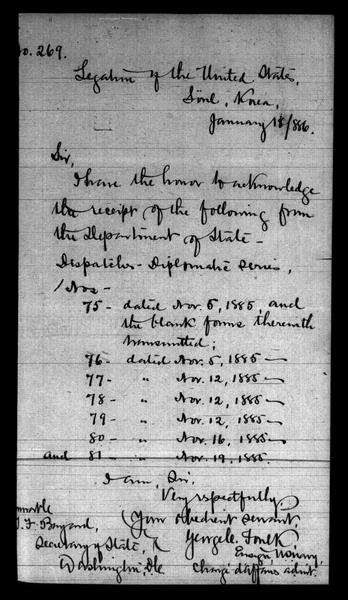 No. 269.
Legation of the United States,
Söul, Korea,
January 18/886.
Sir,
I have the honor to acknowledge
the receipt of the following from
the Department of State -
Dispatches - Diplomatic series,
Nos -
75 - dated Nov. 5, 1885, and
the blank forms therewith
transmitted;
76 - dated Nov. 5, 1885 -
77 - " Nov. 12, 1885 -
78 - " Nov. 12, 1885 -
79 - " Nov. 12, 1885 -
80 - " Nov. 16, 1885 -
and 81 - " Nov. 19, 1885.
I am, Sir,
Very respectfully
Your obedient servant,
T. F. Bayard,
George C. Foulk
Secretary of State,
Ensign U.S. Navy,
Washington, D.C.
Chargé d'affaires